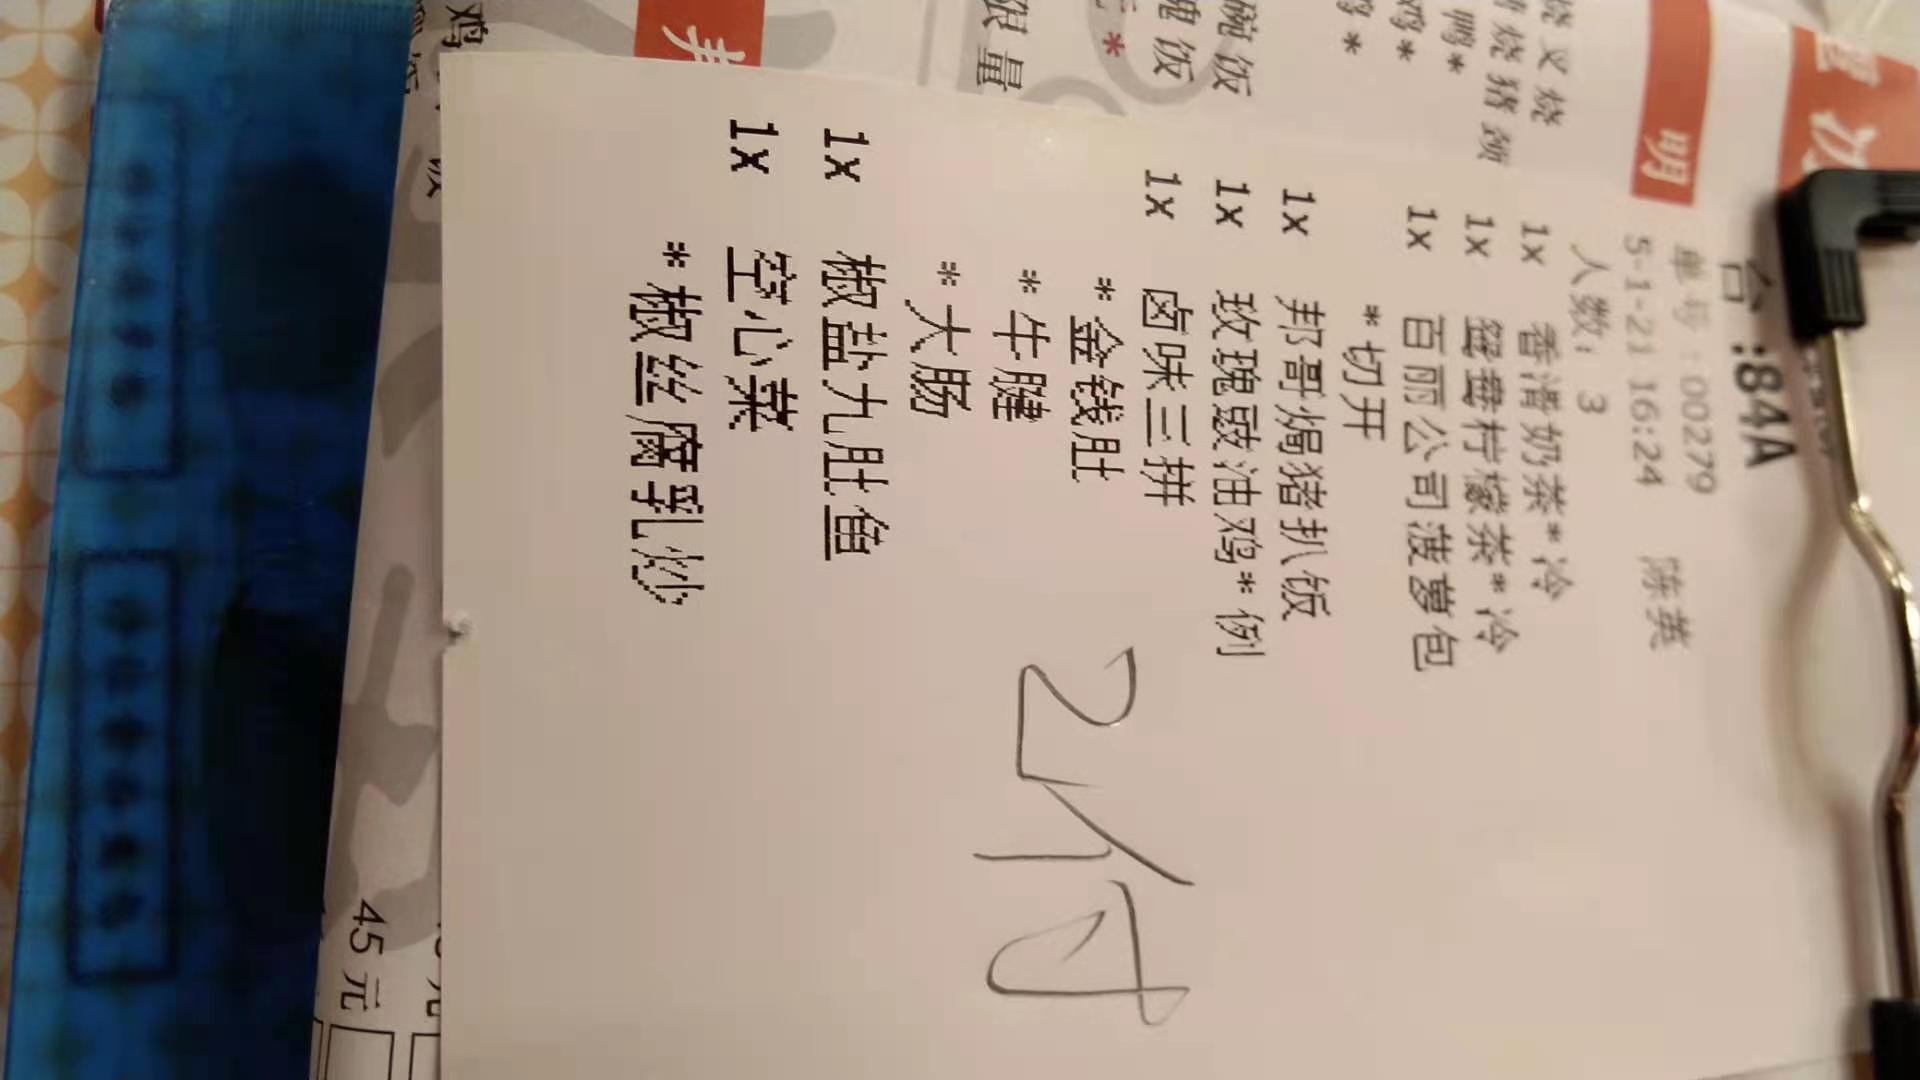 台:84A
单号:00279
5-1-21 16:24 陈英
人数: 3
1x 香滑奶茶*冷
1x 鸳鸯柠檬茶*冷
1x 百丽公司菠萝包
*切开
1x 邦哥焗猪扒饭
1x 玫瑰豉油鸡*例
1x 卤味三拼
*金钱肚
*牛腱
*大肠
1x 椒盐九肚鱼
1x 空心菜
*椒丝腐乳炒
2付
明
限量
45元